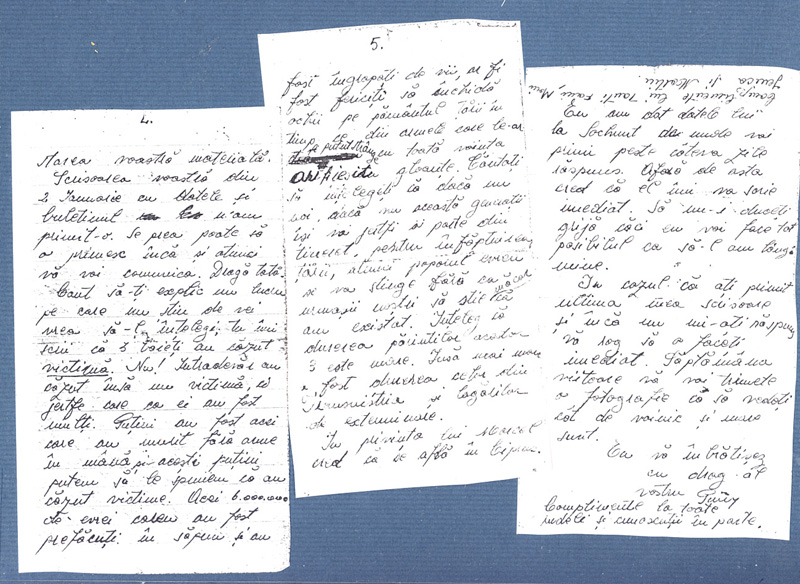 4.
starea voastră materială.
Scrisoarea voastră din
2 Ianuarie cu datele și
buletinul n'am
primit-o. Se prea poate să
o primesc încă și atunci
vă voi comunica. Dragă tată.
Caut să-ți explic un lucru
pe care nu știu de vei
vrea să-l înțelegi, tu îmi
scrii că 3 băieți au căzut
victima. Nu! Intradevăr au
căzut însă nu victimă, ci
jertfe care ca ei au fost
mulți. Puțini au fost acei
care au murit fără arme
în mână și acești puțini
putem să le spunem că au
căzut victime. Acei 6.000.000
de evrei care au fost
prefăcuți în săpun și au
5.
fost îngropați de vii, ar fi
fost fericiți să închidă
ochii pe pământul țării în
timp ce din armele care le-ar
fi putut strânge cu toată voința
gloanțe. Căutați
să înțelegeți că dacă nu
noi, dacă nu această generație
își va jertfi o parte din
tineret, pentru înfăptuirea
țării, atunci poporul evreu
se va stinge fără ca măcar
urmașii noștri să știe că
am existat. Înțeleg că
durerea părinților acestor
3 este mare. Însă mai mare
a fost durerea celor din
Transnistria și lagărilor
de exterminare.
În privința lui
cred că se află în Cipru.
Complimente lui Tanti
și
Eu am dat datele lui
la Sochnut de unde voi
primi peste câteva zile
răspuns. Afară de asta
cred că el îmi va scrie
imediat. Să nu-i duceți
grijă căci eu voi face tot
posibilul ca să-l am lângă
mine.
In cazul că ați primit
ultima mea scrisoare
și încă nu mi-ați răspuns
vă rog să o faceți
imediat. Săptămâna
viitoare vă voi trimete
o fotografie ca să vedeți
cât de voinic și mare
sunt.
Eu vă îmbrățișez
cu drag al
vostru
Complimente la toate
rudele și cunoscuții în parte.